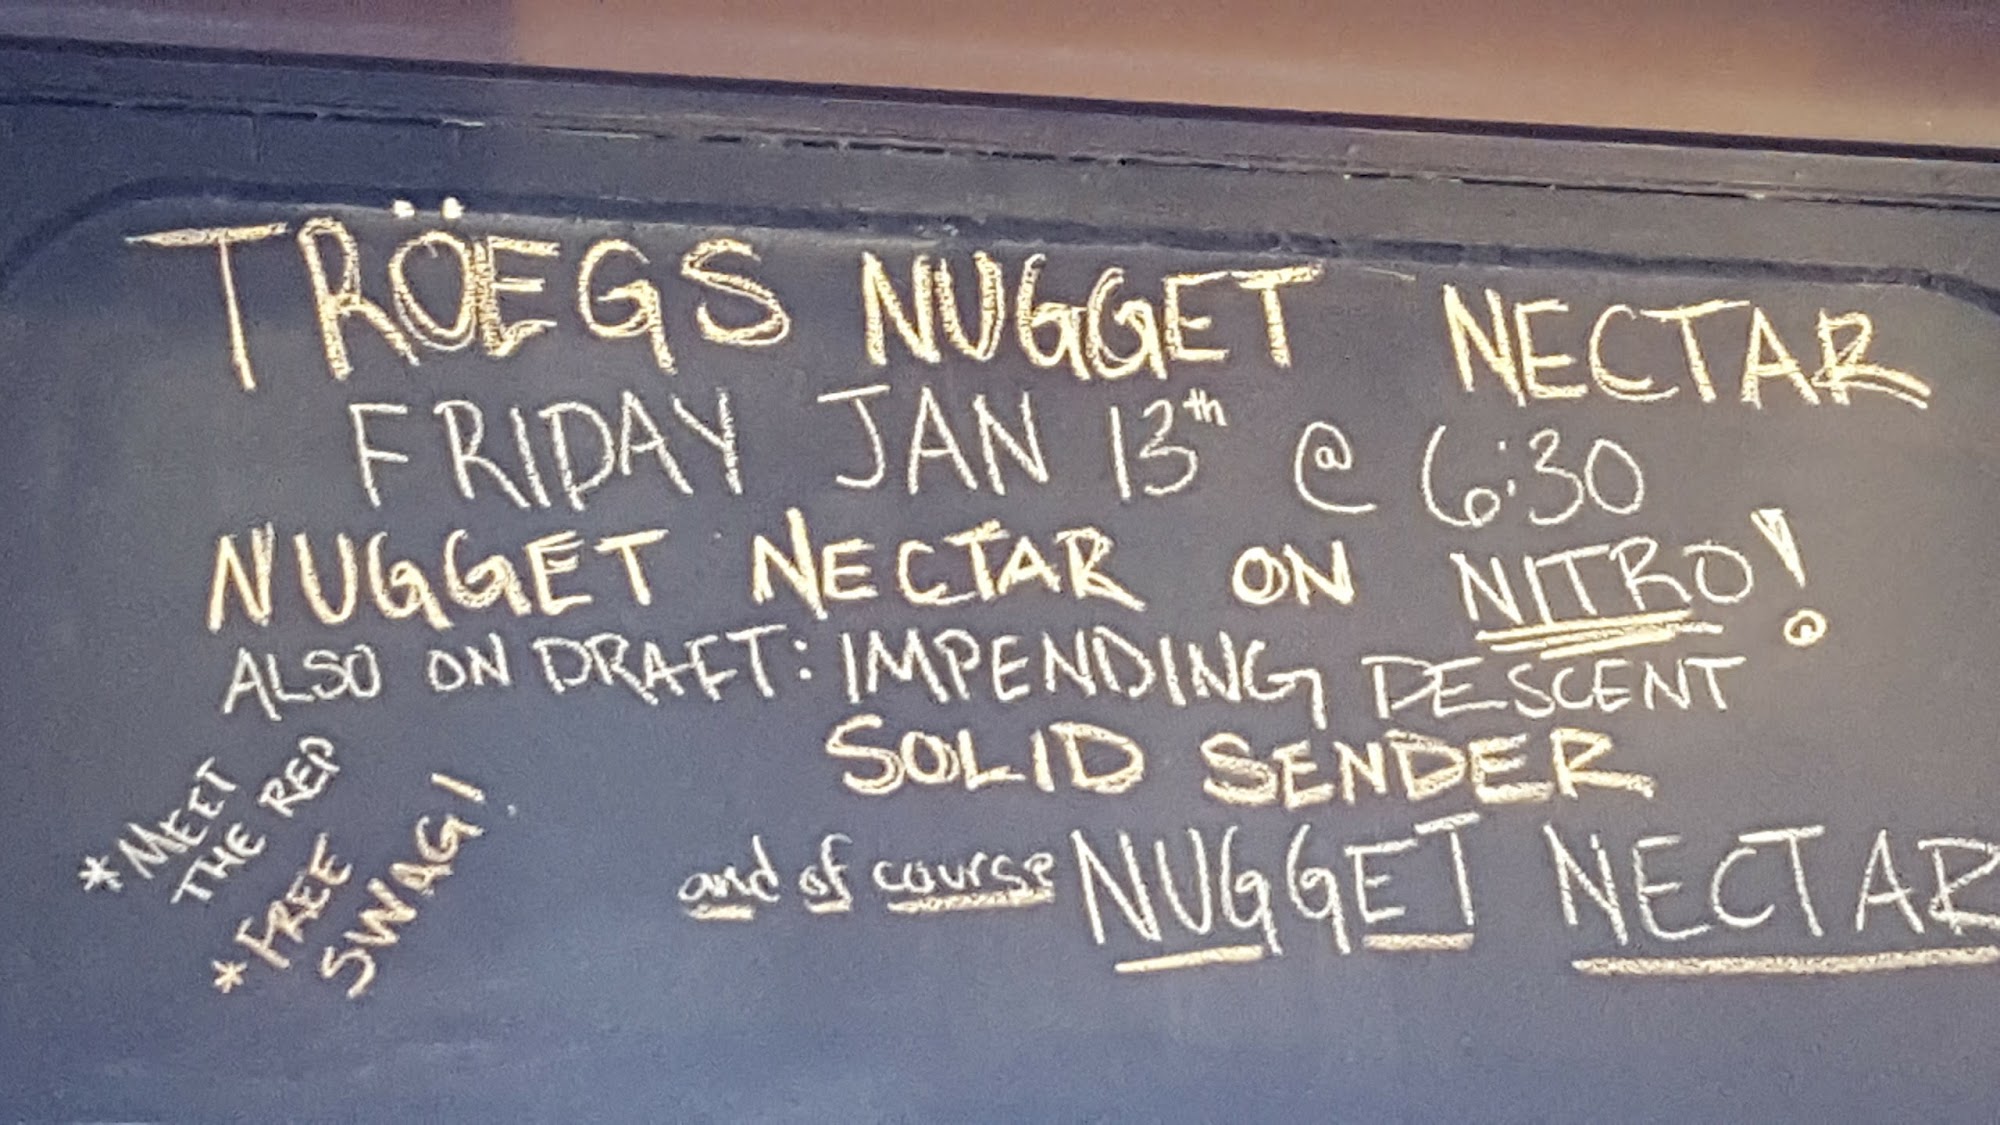 TRÖEGS NUGGET NECTAR
FRIDAY JAN 13th @ 6:30
NUGGET NECTAR ON NITRO!
ALSO ON DRAFT: IMPENDING DESCENT
SOLID SENDER
and of course NUGGET NECTAR
*MEET
THE REP
*FREE
SWAG!